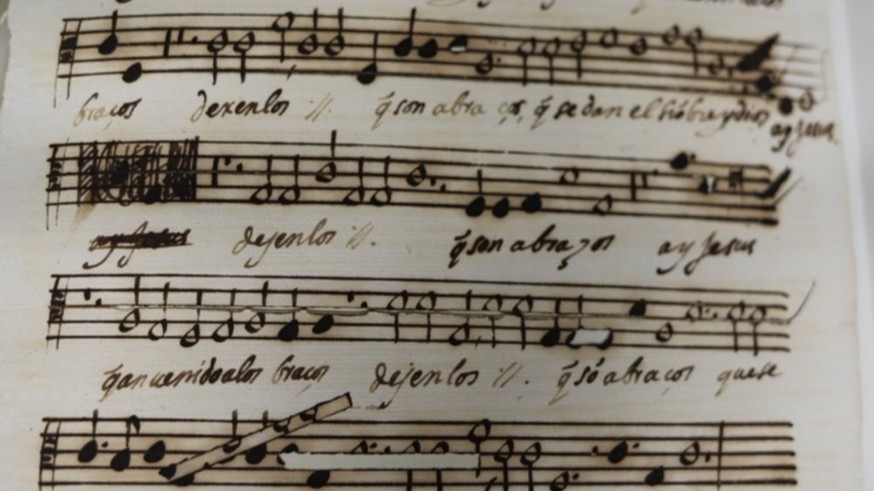 braços dexenlos :||: q̃ son abra ços, q̃ se dan el hõbre y dios ay Jesus
ay Jesus dejenlos :||: q̃ son abrazos ay Jesus
q̃ an uenido a los braços dejenlos :||: q̃ sõ abraços que se